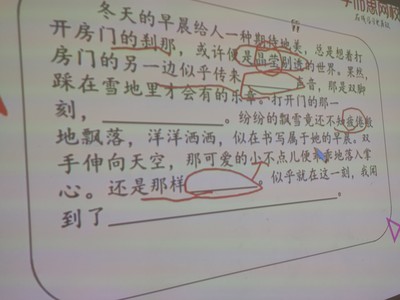 学而思网校
冬天的早晨给人一种期待地美,总是想着打
开房门的刹那,或许便是晶莹剔透的世界。果然,
房门的另一边似乎传来 声音,那是双脚
踩在雪地里才会有的乐章。打开门的那一
刻, 。纷纷的飘雪竟还不
地飘落,洋洋洒洒,似在书写属于她的早晨。双
手伸向天空,那可爱的小不点儿便 地落入掌
心。还是那样 。似乎就在这一刻,我闲
到了 。